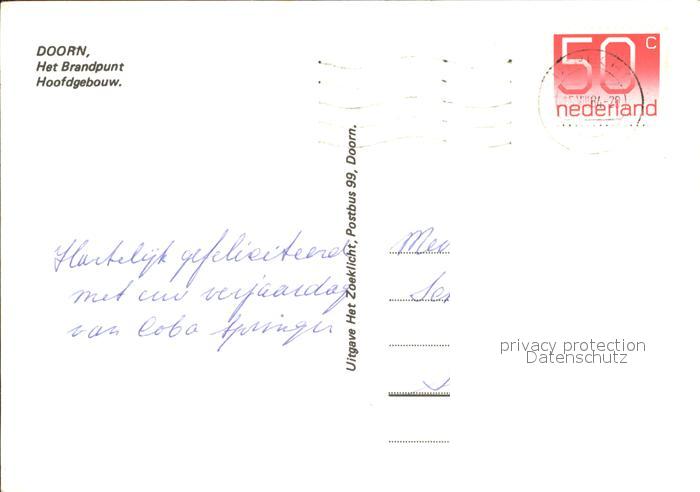 DOORN,
Het Brandpunt
Hoofdgebouw.
50 C
nederland
Uitgave Het Zoeklicht, Postbus 99, Doorn.
Hartelijk gefeliciteerd
met uw verjaardag
van Coba Springer
privacy protection
Datenschutz